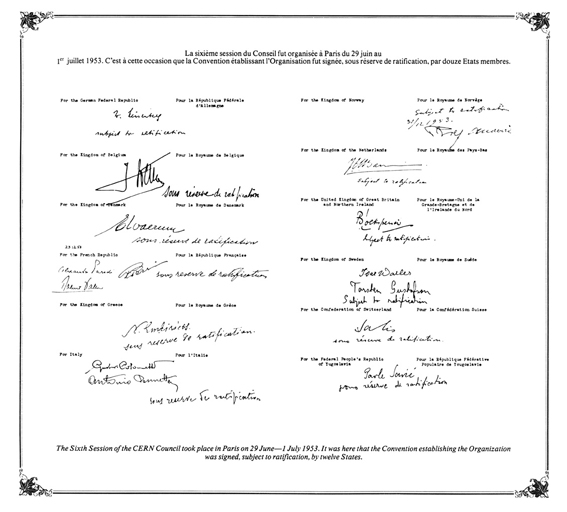 La sixième session du Conseil fut organisée à Paris du 29 juin au
1er juillet 1953. C'est à cette occasion que la Convention établissant l'Organisation fut signée, sous réserve de ratification, par douze Etats membres.
For the German Federal Republic
Pour la République Fédérale
d'Allemagne
subject to ratification
For the Kingdom of Belgium
Pour le Royaume de Belgique
sous réserve de ratification
For the Kingdom of Denmark
Pour le Royaume de Danemark
sous réserve de ratification
For the French Republic
Pour la République Française
sous reserve de ratification
For the Kingdom of Greece
Pour le Royaume de Grèce
sous reserve de ratification.
For Italy
Pour l'Italie
Gustavo Colonnetti
sous reserve de ratification
For the Kingdom of Norway
Pour le Royaume de Norvège
Subject to ratification
31/12/1953.
For the Kingdom of the Netherlands
Pour le Royaume des Pays-Bas
subject to ratification
For the United Kingdom of Great Britain
and Northern Ireland
Pour le Royaume-Uni de la
Grande-Bretagne et de
l'Irlande du Nord
subject to ratification.
For the Kingdom of Sweden
Pour le Royaume de Suède
Torsten Gustafson
Subject to ratification
For the Confederation of Switzerland
Pour la Confédération Suisse
sous réserve de ratification.
For the Federal People's Republic
of Yugoslavia
Pour la République Fédérative
Populaire de Yougoslavie
Pavle Savić
sous réserve de ratification
The Sixth Session of the CERN Council took place in Paris on 29 June—1 July 1953. It was here that the Convention establishing the Organization
was signed, subject to ratification, by twelve States.